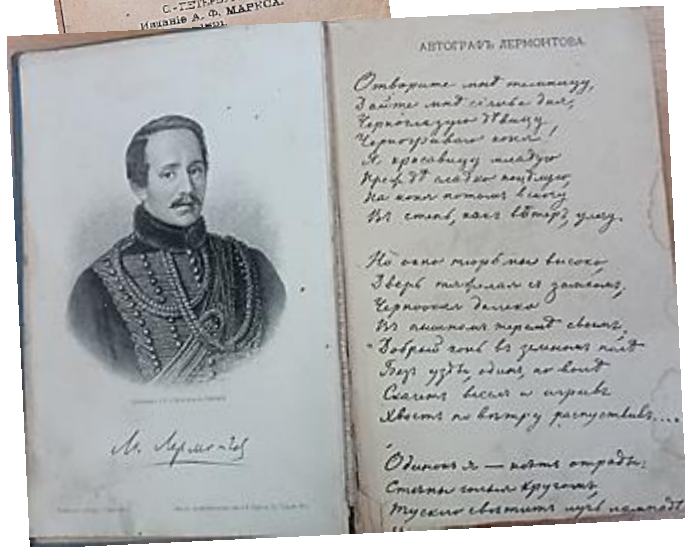 С.-ПЕТЕРБ
Изданіе А. Ф. МАРКСА.
1891.
М. Лермонтов
АВТОГРАФЪ ЛЕРМОНТОВА.
Отворите мнѣ темницу,
Дайте мнѣ сіянье дня,
Черноглазую дѣвицу,
Черногриваго коня!
Я красавицу младую
Прежде сладко поцѣлую,
На коня потомъ вскочу
Въ степь, какъ вѣтеръ, улечу.
Но окно тюрьмы высоко,
Дверь тяжелая съ замкомъ,
Черноокая далеко
Въ пышномъ теремѣ своемъ;
Добрый конь въ зеленомъ полѣ
Безъ узды, одинъ, по волѣ
Скачетъ веселъ и игривъ
Хвостъ по вѣтру распустивъ....
Одинокъ я — нѣтъ отрады:
Стѣны голыя кругомъ,
Тускло свѣтитъ лучъ лампады